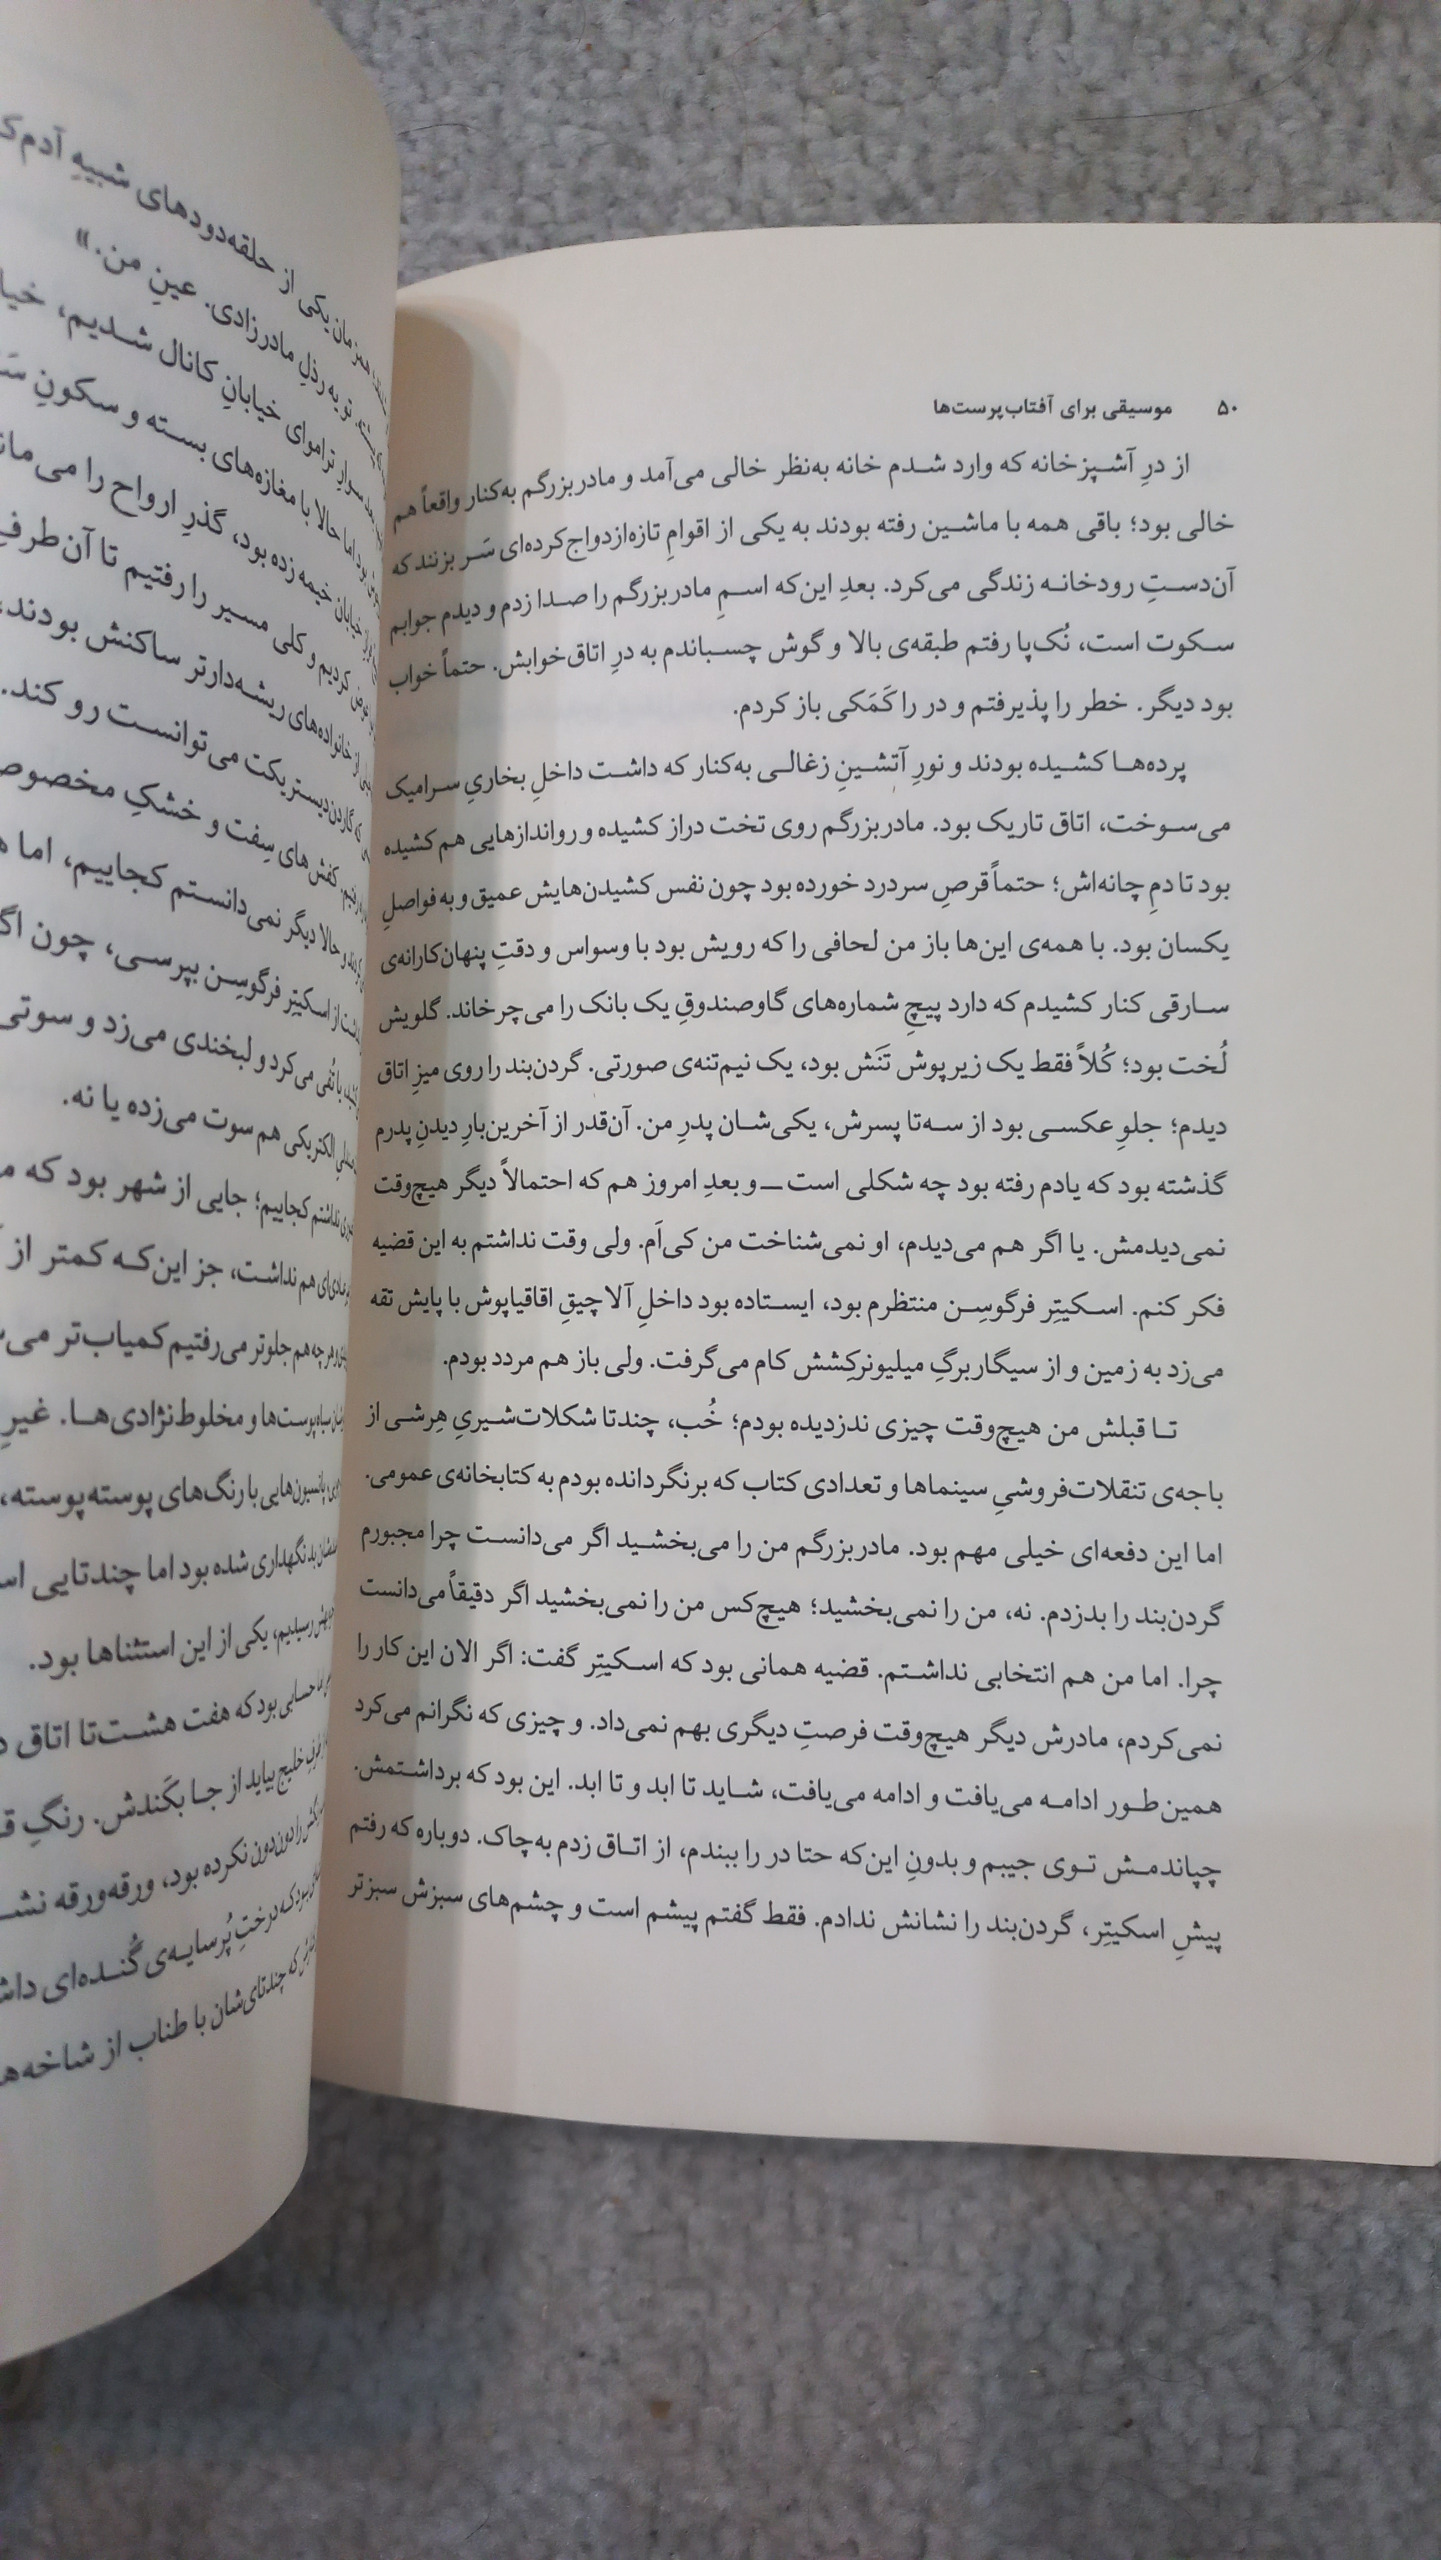 ۵۰ موسیقی برای آفتاب‌پرست‌ها
از درِ آشپزخانه که وارد شدم خانه به‌نظر خالی می‌آمد و مادربزرگم به‌کنار واقعاً هم
خالی بود؛ باقی همه با ماشین رفته بودند به یکی از اقوامِ تازه‌ازدواج‌کرده‌ای سَر بزنند که
آن‌دستِ رودخانه زندگی می‌کرد. بعدِ این‌که اسمِ مادربزرگم را صدا زدم و دیدم جوابم
سکوت است، نُک‌پا رفتم طبقه‌ی بالا و گوش چسباندم به درِ اتاق‌خوابش. حتماً خواب
بود دیگر. خطر را پذیرفتم و در را کَمَکی باز کردم.
پرده‌ها کشیده بودند و نورِ آتشینِ زغالی به‌کنار که داشت داخلِ بخاریِ سرامیک
می‌سوخت، اتاق تاریک بود. مادربزرگم روی تخت دراز کشیده و رواندازهایی هم کشیده
بود تا دمِ چانه‌اش؛ حتماً قرصِ سردرد خورده بود چون نفس کشیدن‌هایش عمیق و به فواصلِ
یکسان بود. با همه‌ی این‌ها باز من لحافی را که رویش بود با وسواس و دقتِ پنهان‌کارانه‌ی
سارقی کنار کشیدم که دارد پیچِ شماره‌های گاوصندوقِ یک بانک را می‌چرخاند. گلویش
لُخت بود؛ کُلاً فقط یک زیرپوش تَنَش بود، یک نیم‌تنه‌ی صورتی. گردن‌بند را روی میزِ اتاق
دیدم؛ جلوِ عکسی بود از سه‌تا پسرش، یکی‌شان پدرِ من. آن‌قدر از آخرین‌بارِ دیدنِ پدرم
گذشته بود که یادم رفته بود چه شکلی است ــ و بعدِ امروز هم که احتمالاً دیگر هیچ‌وقت
نمی‌دیدمش. یا اگر هم می‌دیدم، او نمی‌شناخت من کی‌اَم. ولی وقت نداشتم به این قضیه
فکر کنم. اسکیتِر فرگوسِن منتظرم بود، ایستاده بود داخلِ آلاچیقِ اقاقیاپوش با پایش تقه
می‌زد به زمین و از سیگاربرگِ میلیونرکِشش کام می‌گرفت. ولی باز هم مردد بودم.
تا قبلش من هیچ‌وقت چیزی ندزدیده بودم؛ خُب، چندتا شکلات‌شیریِ هِرشی از
باجه‌ی تنقلات‌فروشیِ سینماها و تعدادی کتاب که برنگردانده بودم به کتابخانه‌ی عمومی.
اما این دفعه‌ای خیلی مهم بود. مادربزرگم من را می‌بخشید اگر می‌دانست چرا مجبورم
گردن‌بند را بدزدم. نه، من را نمی‌بخشید؛ هیچ‌کس من را نمی‌بخشید اگر دقیقاً می‌دانست
چرا. اما من هم انتخابی نداشتم. قضیه همانی بود که اسکیتِر گفت: اگر الان این کار را
نمی‌کردم، مادرش دیگر هیچ‌وقت فرصتِ دیگری بهم نمی‌داد. و چیزی که نگرانم می‌کرد
همین‌طور ادامه می‌یافت و ادامه می‌یافت، شاید تا ابد و تا ابد. این بود که برداشتمش.
چپاندمش توی جیبم و بدونِ این‌که حتا در را ببندم، از اتاق زدم به‌چاک. دوباره که رفتم
پیشِ اسکیتِر، گردن‌بند را نشانش ندادم. فقط گفتم پیشم است و چشم‌های سبزش سبزتر
یکی از حلقه‌دودهای شبیهِ
رذلِ مادرزادی. عینِ من.»
تراموای خیابانِ کانال شدیم،
اما حالا با مغازه‌های بسته و سکونِ
خیابان خیمه زده بود، گذرِ ارواح را
کردیم و کلی مسیر را رفتیم تا
خانواده‌های ریشه‌دارتر ساکنش بودند،
گاردن‌دیستریکت می‌توانست رو کند.
کفش‌های سِفت و خشکِ
و حالا دیگر نمی‌دانستم کجاییم، اما
از اسکیتِر فرگوسِن بپرسی، چون
می‌کرد و لبخندی می‌زد و
الکتریکی هم سوت می‌زده یا نه.
کجاییم؛ جایی از شهر بود که
هم نداشت، جز این‌که کمتر از
هرچه هم جلوتر می‌رفتیم کمیاب‌تر
سیاه‌پوست‌ها و مخلوط‌نژادی‌ها. غیرِ
پانسیون‌هایی با رنگ‌های پوسته‌پوسته،
بد نگهداری شده بود اما چندتایی
رسیدیم، یکی از این استثناها بود.
حسابی بود که هفت هشت‌تا اتاق
خلیج بیاید از جا بکَندش. رنگِ
نکرده بود، ورقه‌ورقه
درختِ پُرسایه‌ی گُنده‌ای
که چندتای‌شان با طناب از